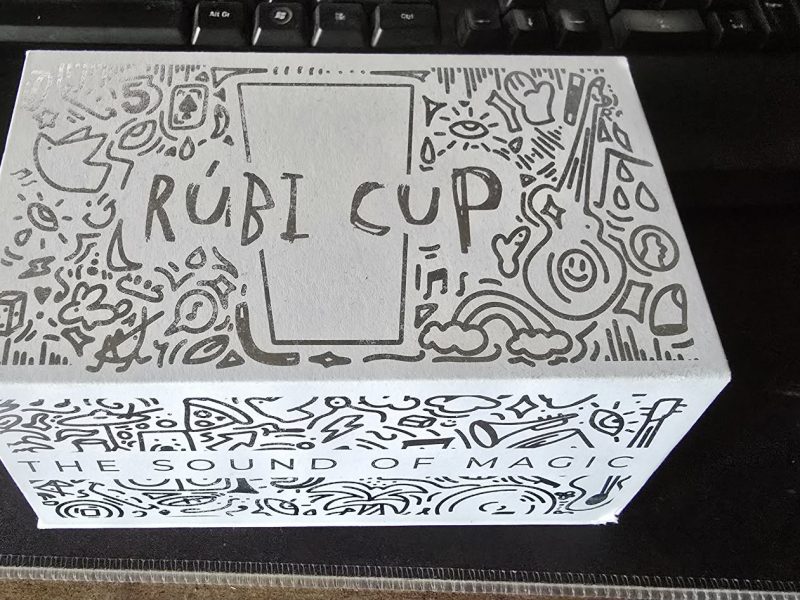 Alt Gr
Ctrl
5
RÚBI CUP
THE SOUND OF MAGIC